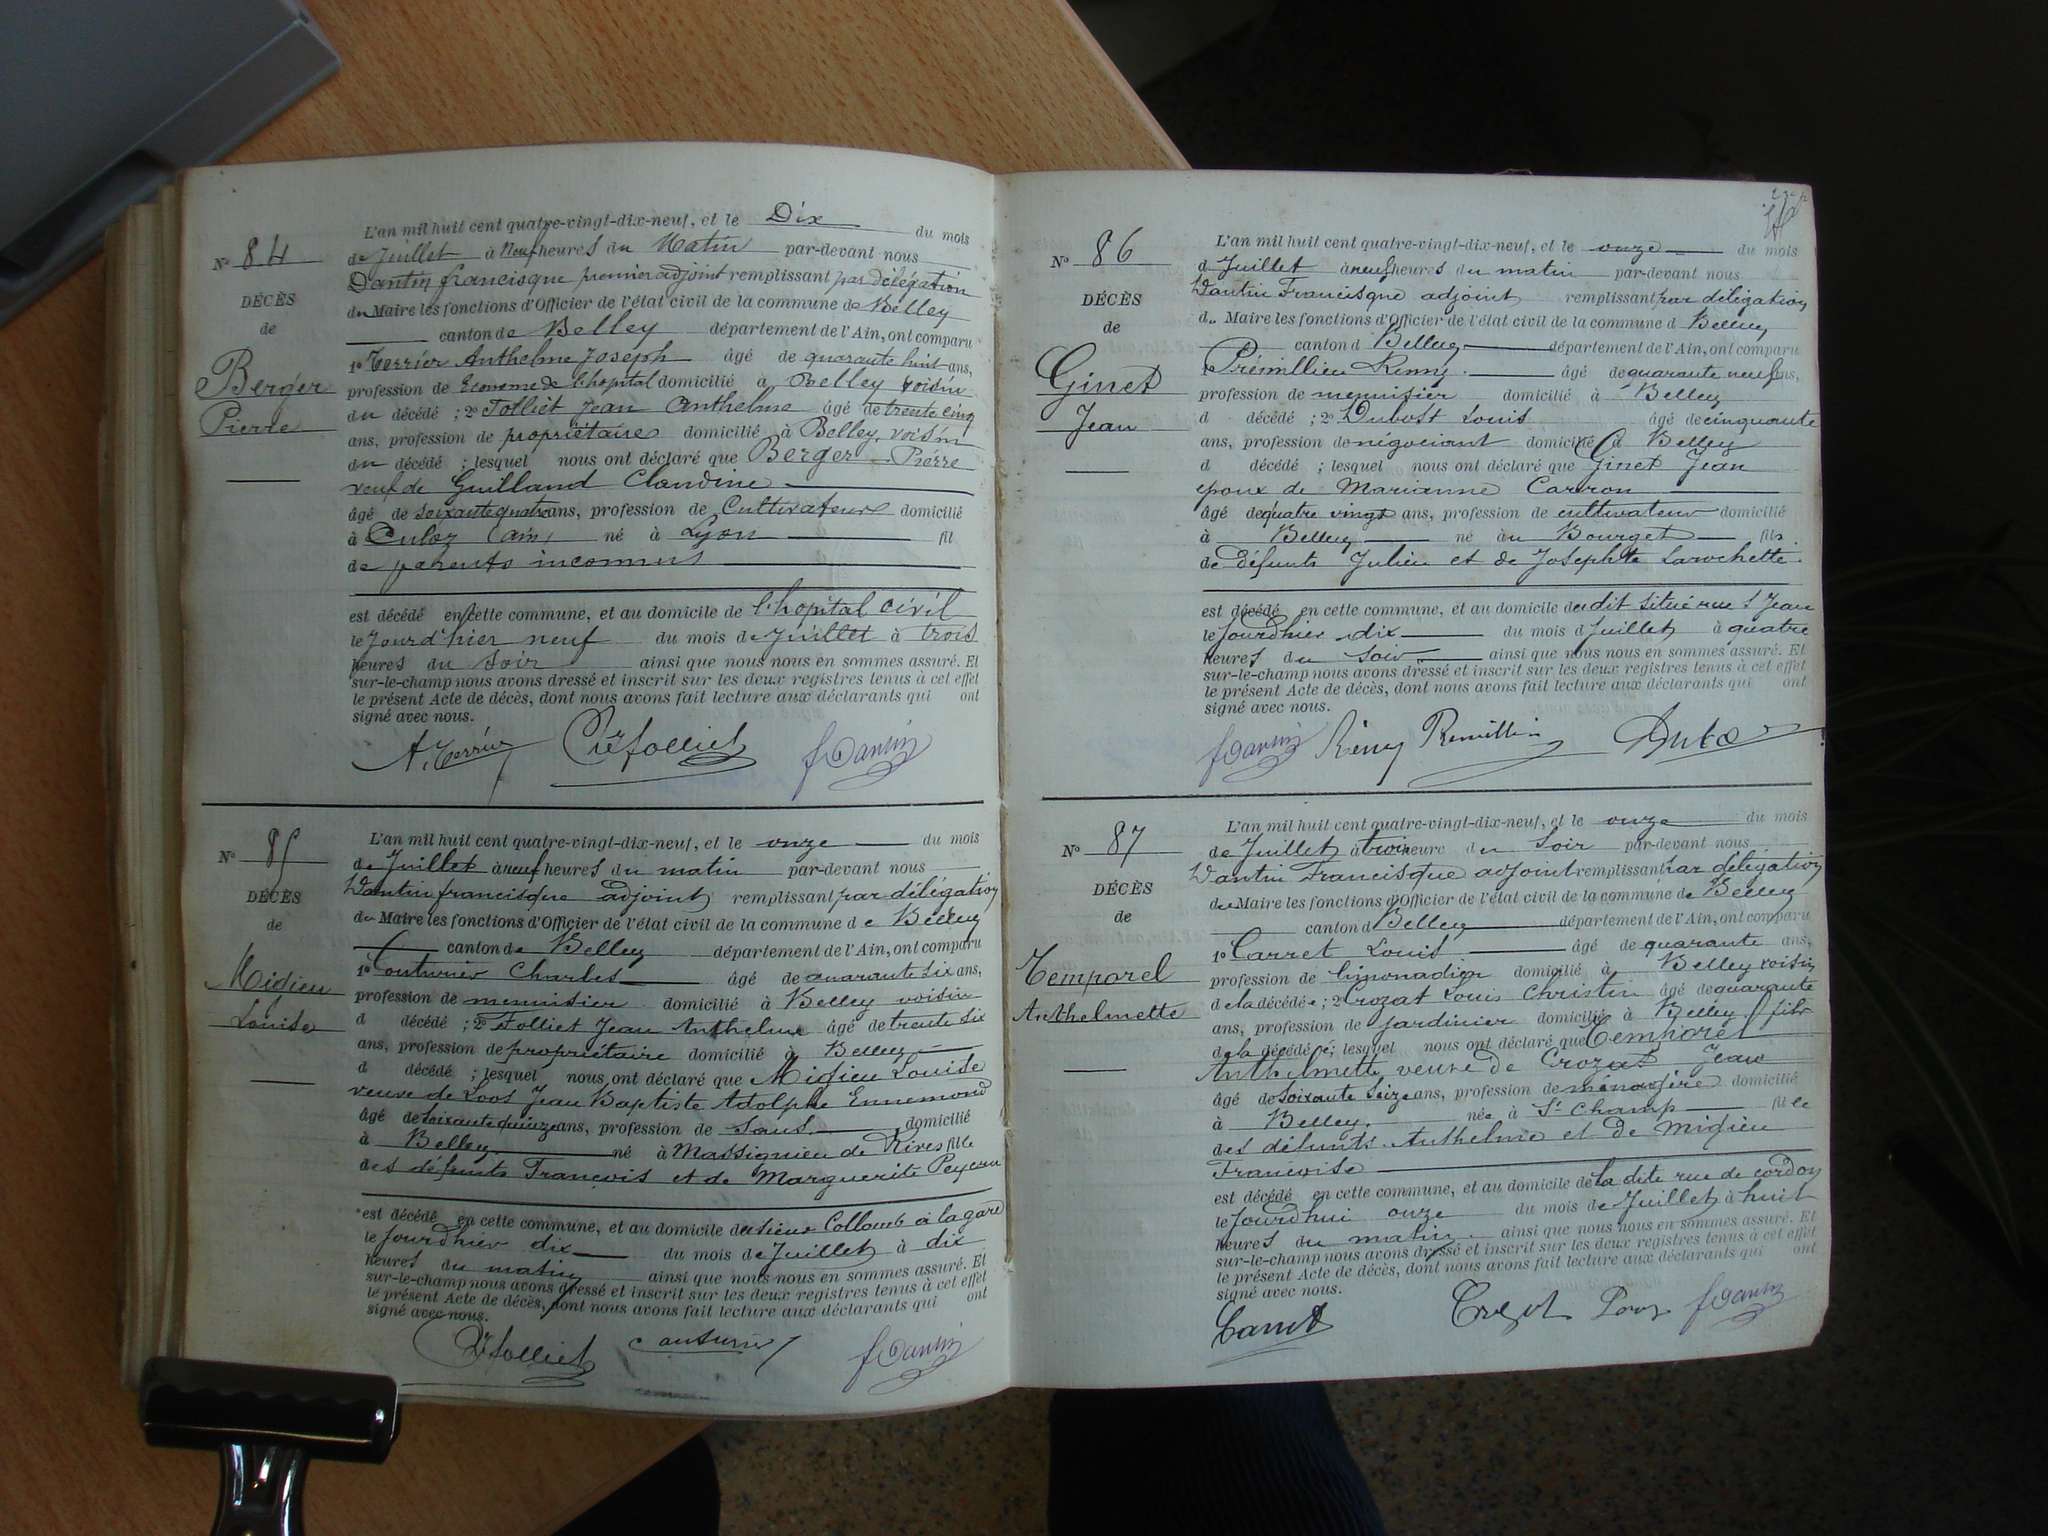 L'an mil huit cent quatre-vingt-dix-neuf, et le Dix du mois
N° 84
de Juillet à Neuf heures du Matin par-devant nous
Dantin francisque premier adjoint remplissant par délégation
DÉCÈS
du Maire les fonctions d'Officier de l'état civil de la commune de Belley
de
canton de Belley département de l'Ain, ont comparu
1° Terrier Anthelme Joseph âgé de quarante huit ans,
Berger
profession de Econome de l'hopital domicilié à Belley voisin
Pierre
du décédé ; 2° Folliet Jean Anthelme âgé de trente cinq
ans, profession de propriétaire domicilié à Belley, voisin
du décédé ; lesquel nous ont déclaré que Berger Pierre
veuf de Guilland Claudine
âgé de soixante quatre ans, profession de Cultivateur domicilié
à Culoz (ain) né à Lyon fil
de parents inconnus
est décédé en cette commune, et au domicile de l'hopital civil
le jourd'hier neuf du mois de Juillet à trois
heures du soir ainsi que nous nous en sommes assuré. Et
sur-le-champ nous avons dressé et inscrit sur les deux registres tenus à cet effet
le présent Acte de décès, dont nous avons fait lecture aux déclarants qui ont
signé avec nous.
A. Terrier folliet f Dantin
L'an mil huit cent quatre-vingt-dix-neuf, et le onze du mois
N° 85
de Juillet à neuf heures du matin par-devant nous
DÉCÈS
Dantin francisque adjoint remplissant par délégation
de
du Maire les fonctions d'Officier de l'état civil de la commune de Belley
canton de Belley département de l'Ain, ont comparu
Midieu
1° Couturier Charles âgé de quarante six ans,
profession de menuisier domicilié à Belley voisin
Louise
d décédé ; 2° Folliet Jean Anthelme âgé de trente six
ans, profession de propriétaire domicilié à Belley
d décédé ; lesquel nous ont déclaré que Midieu Louise
veuve de Loos Jean Baptiste Adolphe Ennemond
âgé de soixante quinze ans, profession de sans domicilié
à Belley né à Massignieu de Rives fille
des défunts François et de Marguerite
est décédé en cette commune, et au domicile du sieur Collomb à la gare
le jourdhier dix du mois de Juillet à dix
heures du matin ainsi que nous nous en sommes assuré. Et
sur-le-champ nous avons dressé et inscrit sur les deux registres tenus à cet effet
le présent Acte de décès, dont nous avons fait lecture aux déclarants qui ont
signé avec nous.
folliet couturier f Dantin
L'an mil huit cent quatre-vingt-dix-neuf, et le onze du mois
N° 86
d Juillet à neuf heures du matin par-devant nous
DÉCÈS
Dantin Francisque adjoint remplissant par délégation
de
du Maire les fonctions d'Officier de l'état civil de la commune d Belley
canton d Belley département de l'Ain, ont comparu
Ginet
Prémillieu Rémy âgé de quarante neuf ans,
profession de menuisier domicilié à Belley
Jean
d décédé ; 2° Dubost Louis âgé de cinquante
ans, profession de négociant domicilié à Belley
d décédé ; lesquel nous ont déclaré que Ginet Jean
époux de Marianne Carron
âgé de quatre vingt ans, profession de cultivateur domicilié
à Belley né au Bourget fils
de défunts Julien et de Josephte Larochette
est décédé en cette commune, et au domicile du dit situé rue St Jean
le jourdhier dix du mois d Juillet à quatre
heures du soir ainsi que nous nous en sommes assuré. Et
sur-le-champ nous avons dressé et inscrit sur les deux registres tenus à cet effet
le présent Acte de décès, dont nous avons fait lecture aux déclarants qui ont
signé avec nous.
f Dantin Rémy
L'an mil huit cent quatre-vingt-dix-neuf, et le onze du mois
N° 87
de Juillet à trois heure du soir par-devant nous
DÉCÈS
Dantin Francisque adjoint remplissant par délégation
de
du Maire les fonctions d'Officier de l'état civil de la commune de Belley
canton d Belley département de l'Ain, ont comparu
Temporel
1° Carret Louis âgé de quarante ans,
profession de limonadier domicilié à Belley voisin
Anthelmette
de la décédée ; 2° Crozat Louis Christin âgé de quarante
ans, profession de jardinier domicilié à Belley, fils
de la décédée ; lesquel nous ont déclaré que Temporel
Anthelmette veuve de Crozat Jean
âgé de soixante seize ans, profession de ménagère domicilié
à Belley née à St Champ fille
des défunts Anthelme et de Midieu
Françoise
est décédé en cette commune, et au domicile de la dite rue de cordon
le jourdhui onze du mois de Juillet à huit
heures du matin ainsi que nous nous en sommes assuré. Et
sur-le-champ nous avons dressé et inscrit sur les deux registres tenus à cet effet
le présent Acte de décès, dont nous avons fait lecture aux déclarants qui ont
signé avec nous.
Carret f Dantin